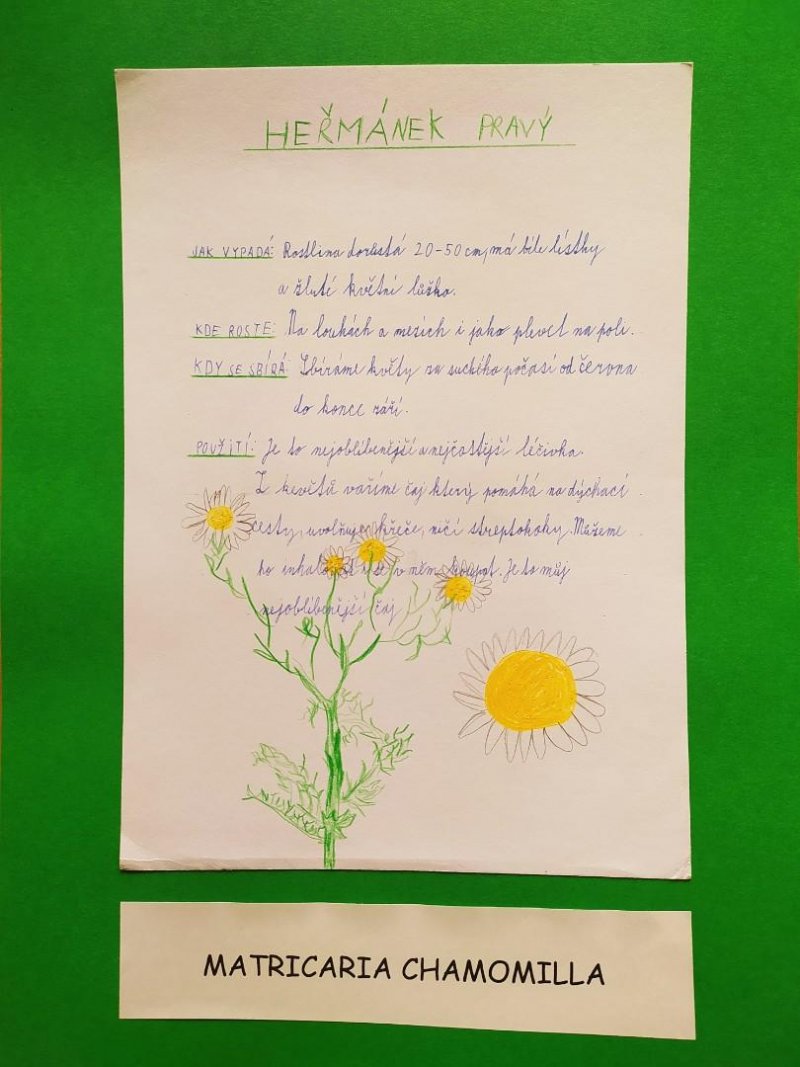 HEŘMÁNEK PRAVÝ
JAK VYPADÁ: Rostlina dorůstá 20-50 cm, má bíle lístky
a žlutí květní lůžko.
KDE ROSTE: Na loukách a mezích i jako plevel na poli.
KDY SE SBÍRÁ: Sbíráme květy za suchého počasí od června
do konce září.
POUŽITÍ: Je to nejoblíbenější a nejčastější léčivka.
Z kevětů vaříme čaj který pomáhá na dýchací
cesty, uvolňuje křeče, ničí streptokoky. Můžeme
ho inhalovat a se v něm koupat. Je to můj
nejoblíbenější čaj
MATRICARIA CHAMOMILLA